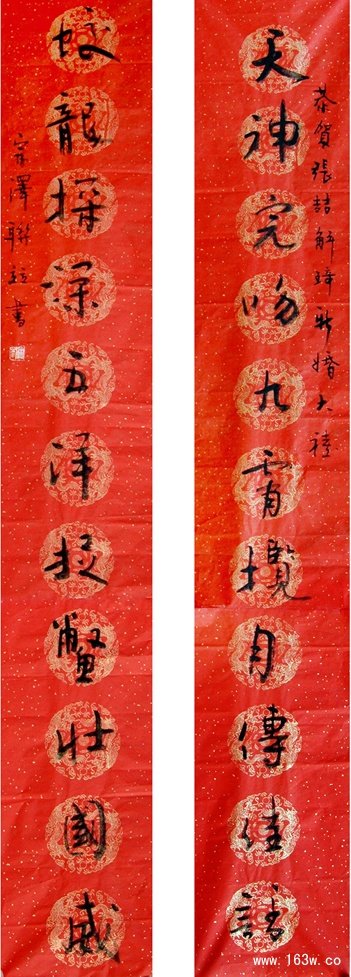 恭賀張喆解琦新婚大禧
天神完吻九霄攬月傳佳話
蛟龍探深五洋捉鱉壯國威
宗澤聯並書
www.163w.co